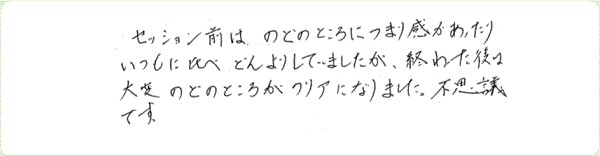 セッション前は、のどのところにつまり感があったり
いつもに比べどんよりしていましたが、終わった後は
大変のどのところがクリアになりました。不思議
です